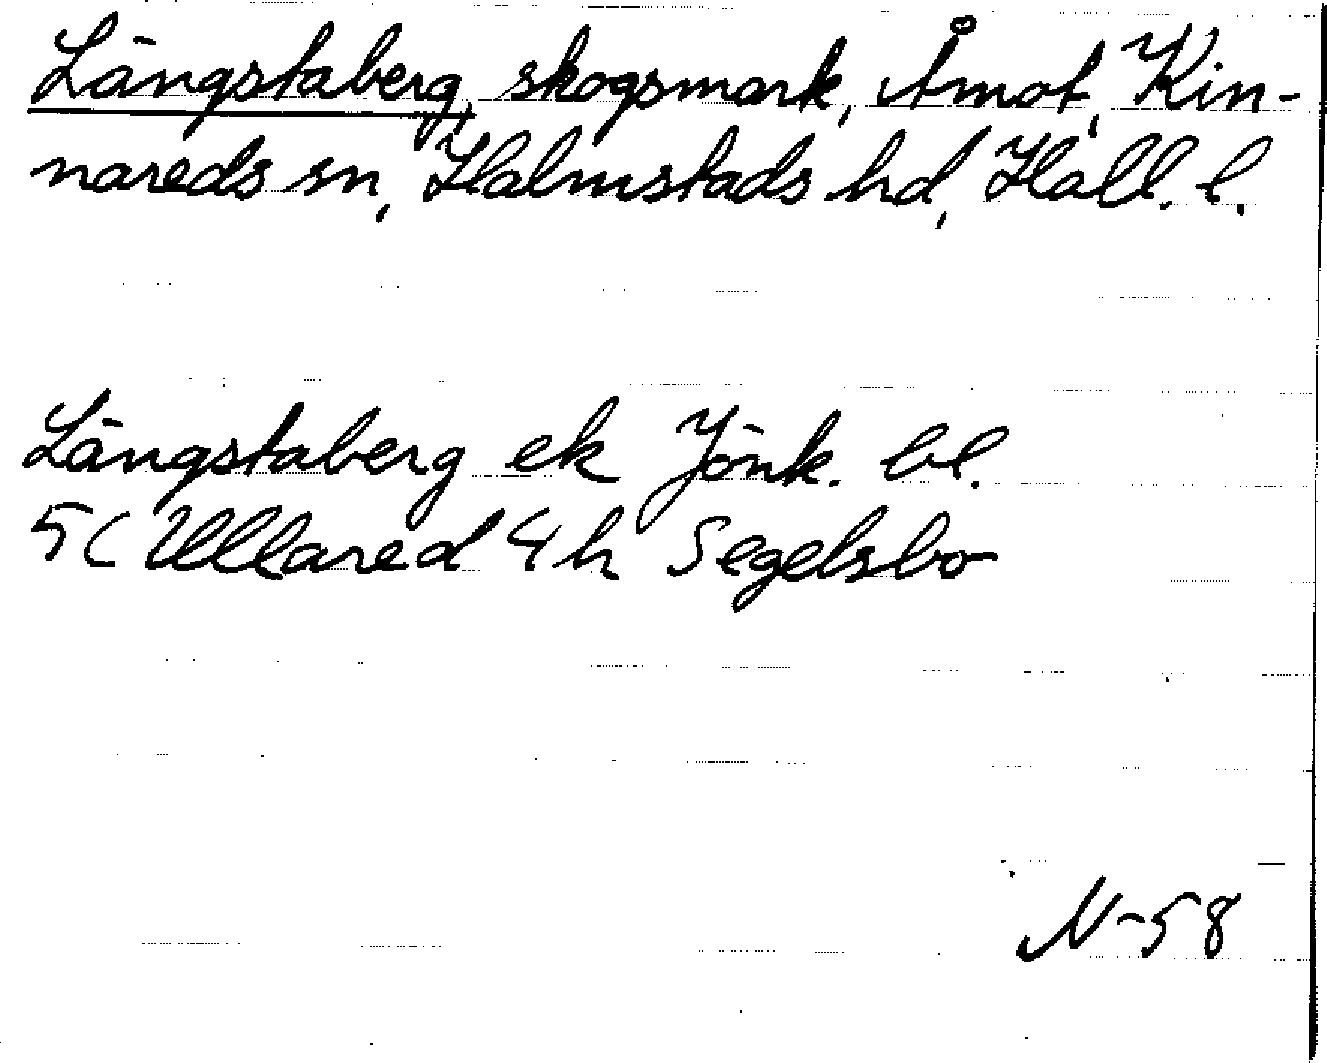 Längstaberg, skogsmark, Åmot, Kin-
nareds sn, Halmstads hd, Hall. l.
Längstaberg ek Jönk. bl.
5C Ullared 4h Segelsbo
N-58